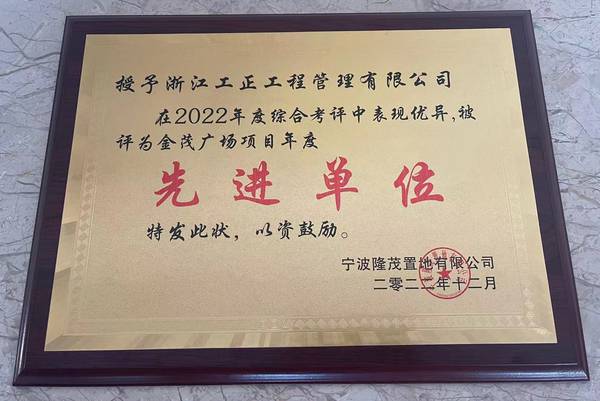 授予浙江工正工程管理有限公司
在2022年度综合考评中表现优异,被
评为金茂广场项目年度
先进单位
特发此状，以资鼓励。
宁波隆茂置地有限公司
二零二二年十二月